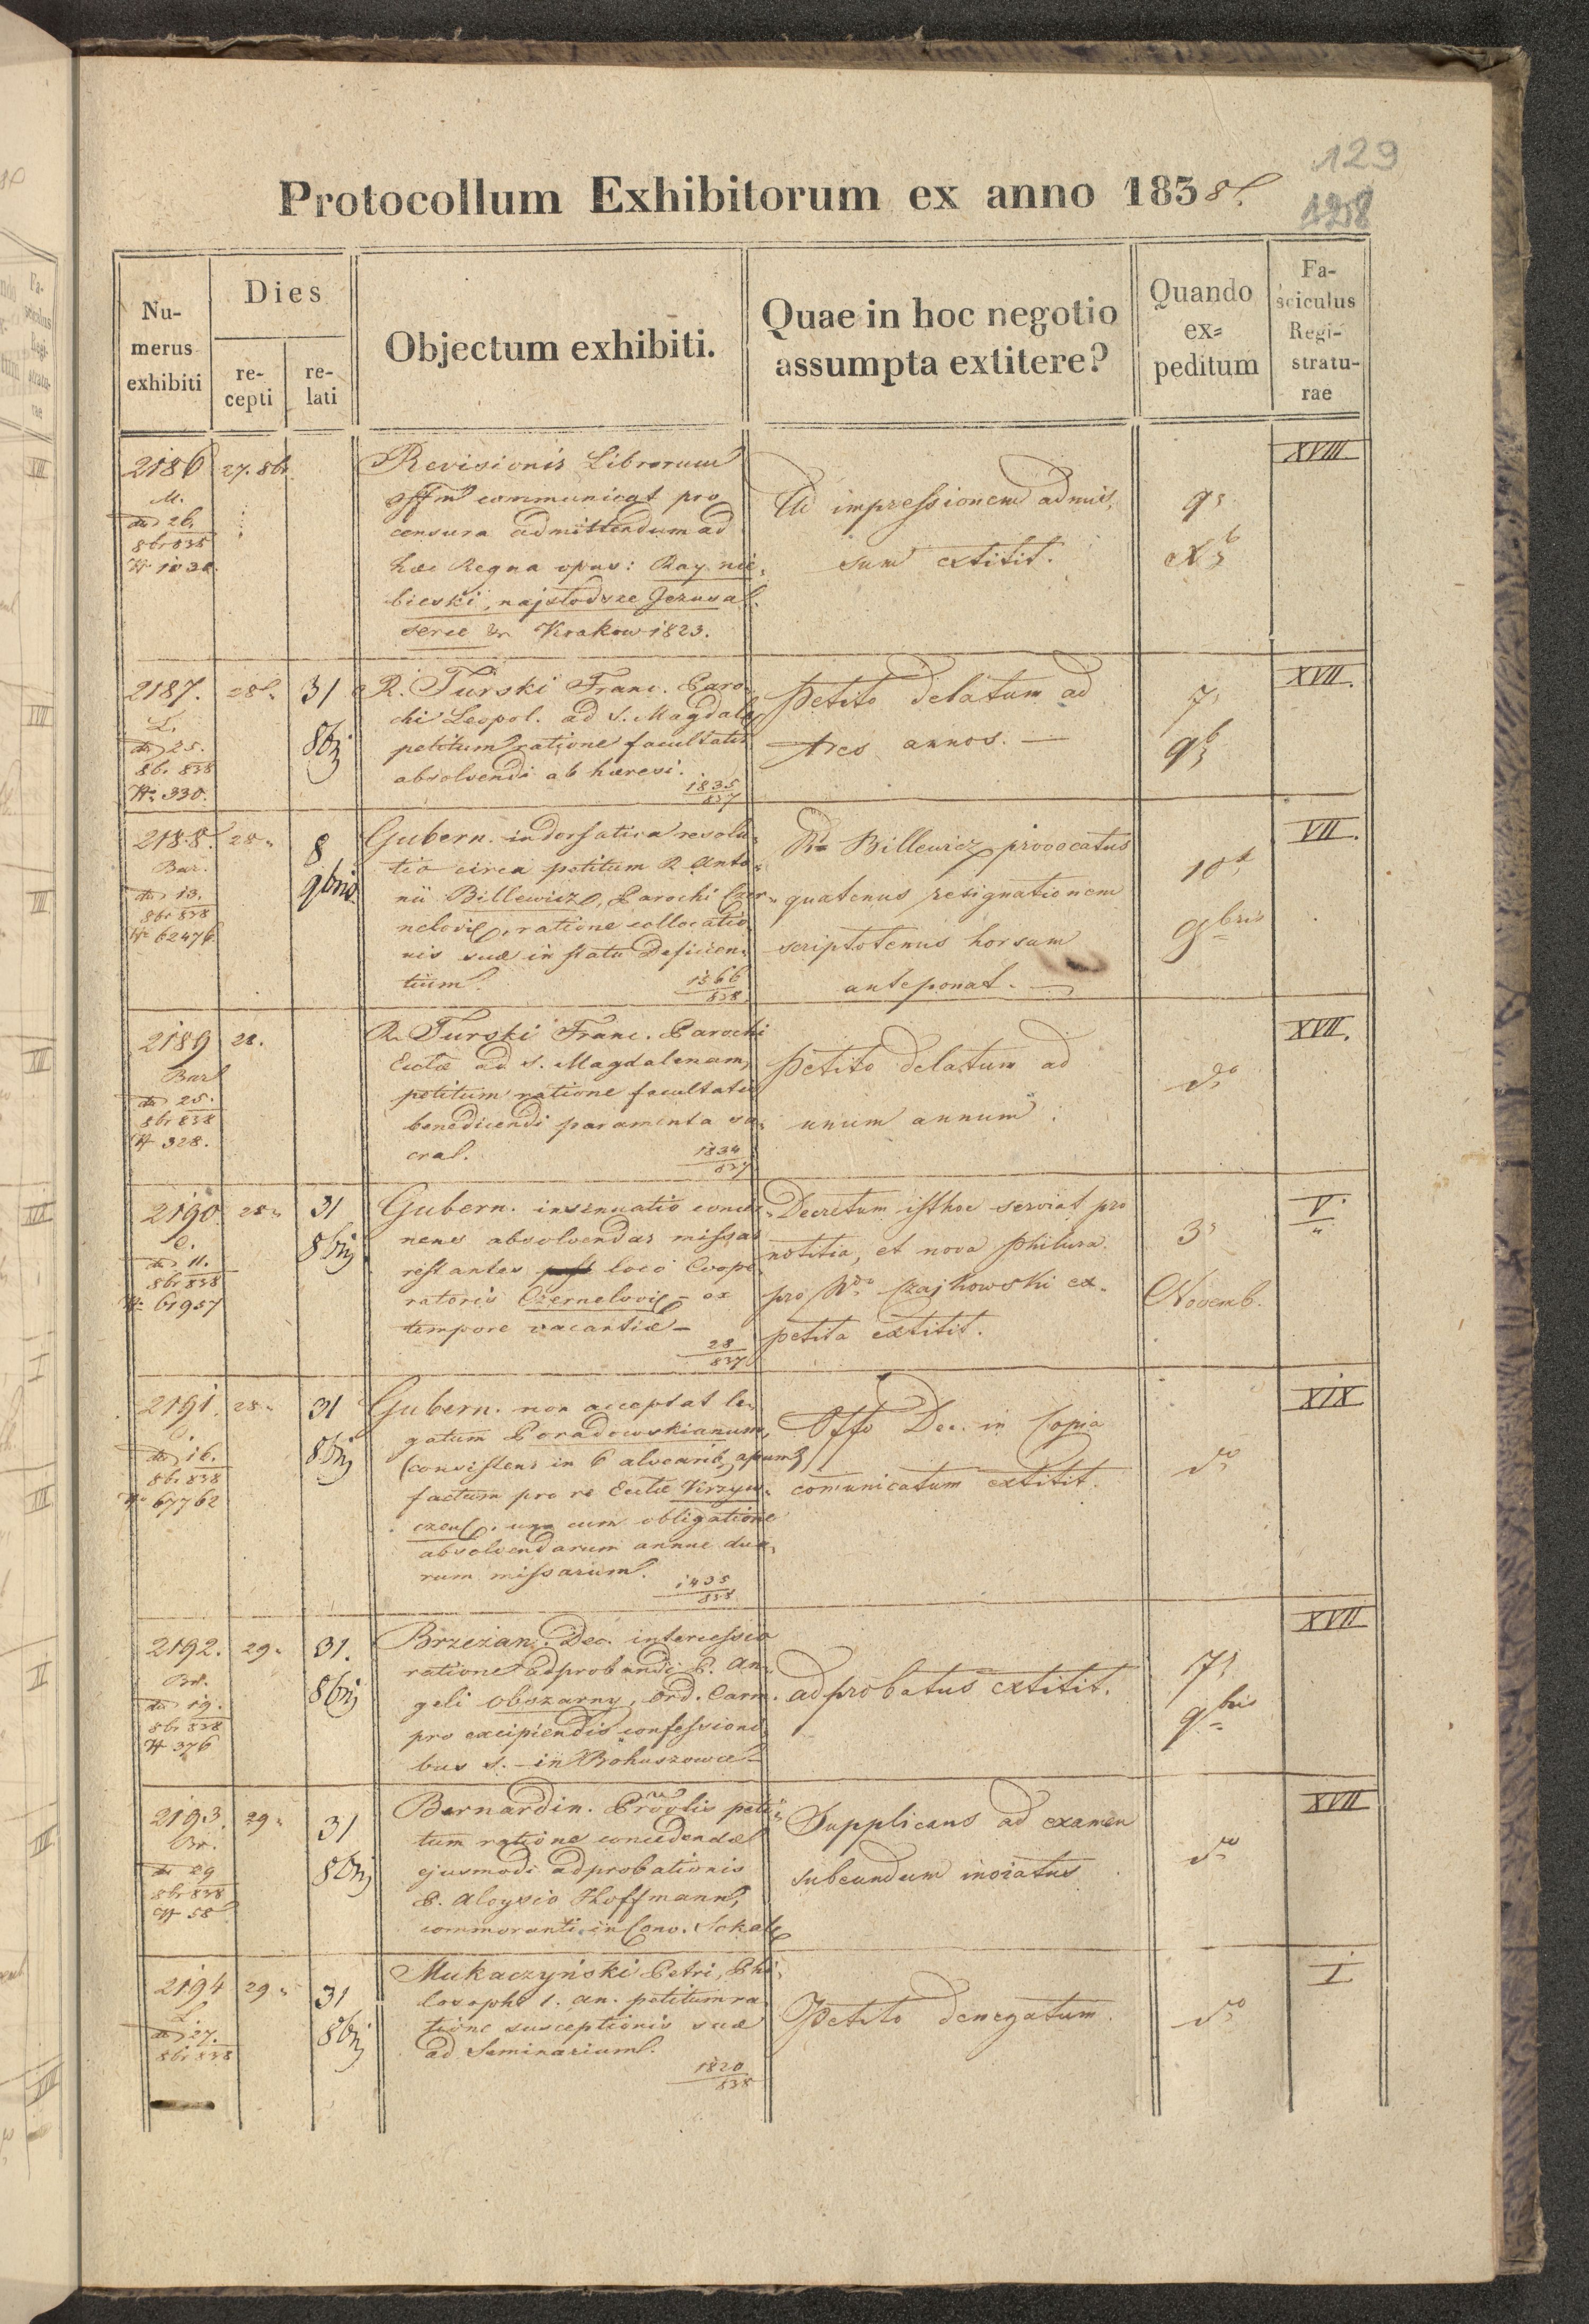 129
128
Protocollum Exhibitorum ex anno 1838.
Numerus exhibiti
Dies
recepti
relati
Objectum exhibiti.
Quae in hoc negotio assumpta extitere?
Quando expeditum
Fasciculus Registraturae
2186
27. 8br.
M.
dto 26.
8br 838
Revisionis Librorum
Offm communicat pro
censura admittendum ad
hæc Regna opus: Ray nie-
bieski, najsłodsze Jezusa
serce &c Krakow 1823.
Ad impressionem admis-
sum extitit.
9
XVIII
2187.
L.
dto 25.
8br 838
N 330.
28
31
8bris
R. Turski Franc. Paro-
chi Leopol. ad S. Magdale
petitum ratione facultatis
absolvendi ab hæresi.
1835
837
Petito delatum ad
tres annos. —
7
9b
XVII.
2188.
Bar.
dto 13.
8br 838
N 62476
28
8
9bris
Gubern. indorsativa resolu-
tio circa petitum R. Anto-
nii Billewicz, Parochi Czer-
nelovi, ratione collocatio-
nis suæ in statu Deficien-
tium.
1566
838
Rd Billewicz provocatus
quatenus resignationem
scriptotenus horsum
anteponat. —
10
9bris
VII.
2189
Bar
dto 25.
8br 838
N 328.
28.
R. Turski Franc. Parochi
Eccltæ ad S. Magdalenam,
petitum ratione facultatis
benedicendi paramenta sa-
cra.
1834
837
Petito delatum ad
unum annum.
do
XVII.
2190
C.
dto 11.
8br 838
N 61957
28
31
8bris
Gubern. insinuatio concer-
nens absolvendas missas
restantes post loco Coope-
ratoris Czernelovi - ex
tempore vacantiæ -
28
837
Decretum isthoc serviat pro
notitia, et nova philura
pro Rdo Czajkowski ex-
petita extitit.
3
Novemb.
V.
2191.
dto 16.
8br 838
N 67762
28
31
8bris
Gubern. non acceptat le-
gatum Poradowskianum,
(consistens in 6 alvearib. apum)
factum pro re Eccltæ Kirzyw-
czen. una cum obligatione
absolvendarum annue dua-
rum missarum.
1435
838
Offo Dec. in Copia
comunicatum extitit.
do
XIX
2192.
Br.
dto 19.
8br 838
N 376
29
31.
8bris
Brzeżan. Dec. intercessio
ratione adprobandi P. An-
geli Obszarny, Ord. Carm.
pro excipiendis confessioni-
bus S. in Bohuszowce
adprobatus extitit.
17
9bris
XVII
2193.
Br.
dto 29
8br 838
N 58
29
31
8bris
Bernardin. Provlis peti-
tum ratione concedendæ
ejusmodi adprobationis
P. Aloysio Hoffmann,
commoranti in Conv. Sokal
Supplicans ad examen
subeundum inviatus
do
XVII
2194
L.
dto 27.
8br 838
29
31
8bris
Mukaczyński Petri, Phi-
losophi 1. an. petitum ra-
tione susceptionis suæ
ad Seminarium.
1820
838
Petito denegatum.
do
I